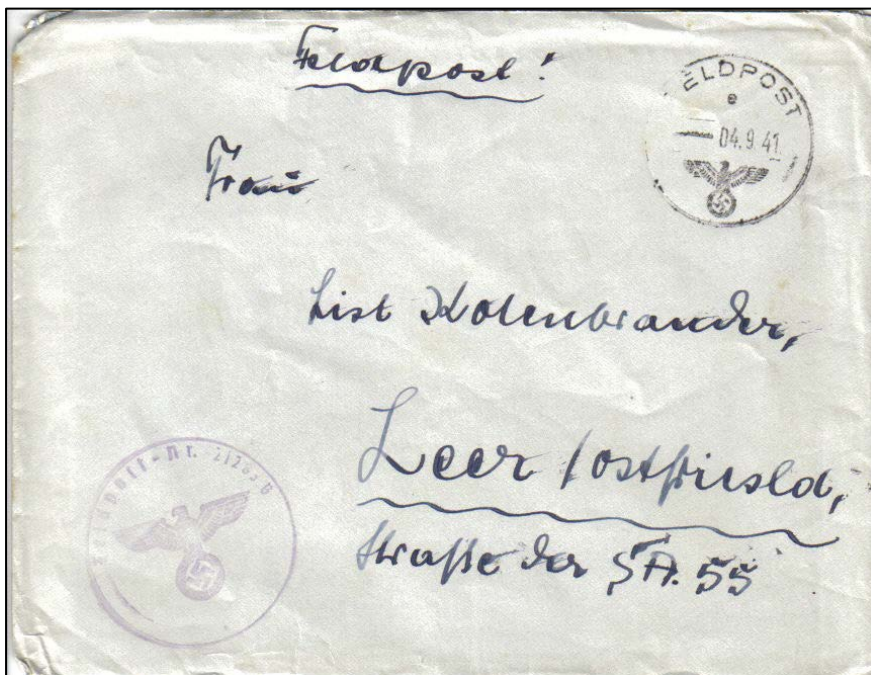 Feldpost!
FELDPOST
e
04.9.41
Frau
Kolenbrander,
Leer / Ostfriesld,
Straße der SA. 55
Feldpost-Nr.